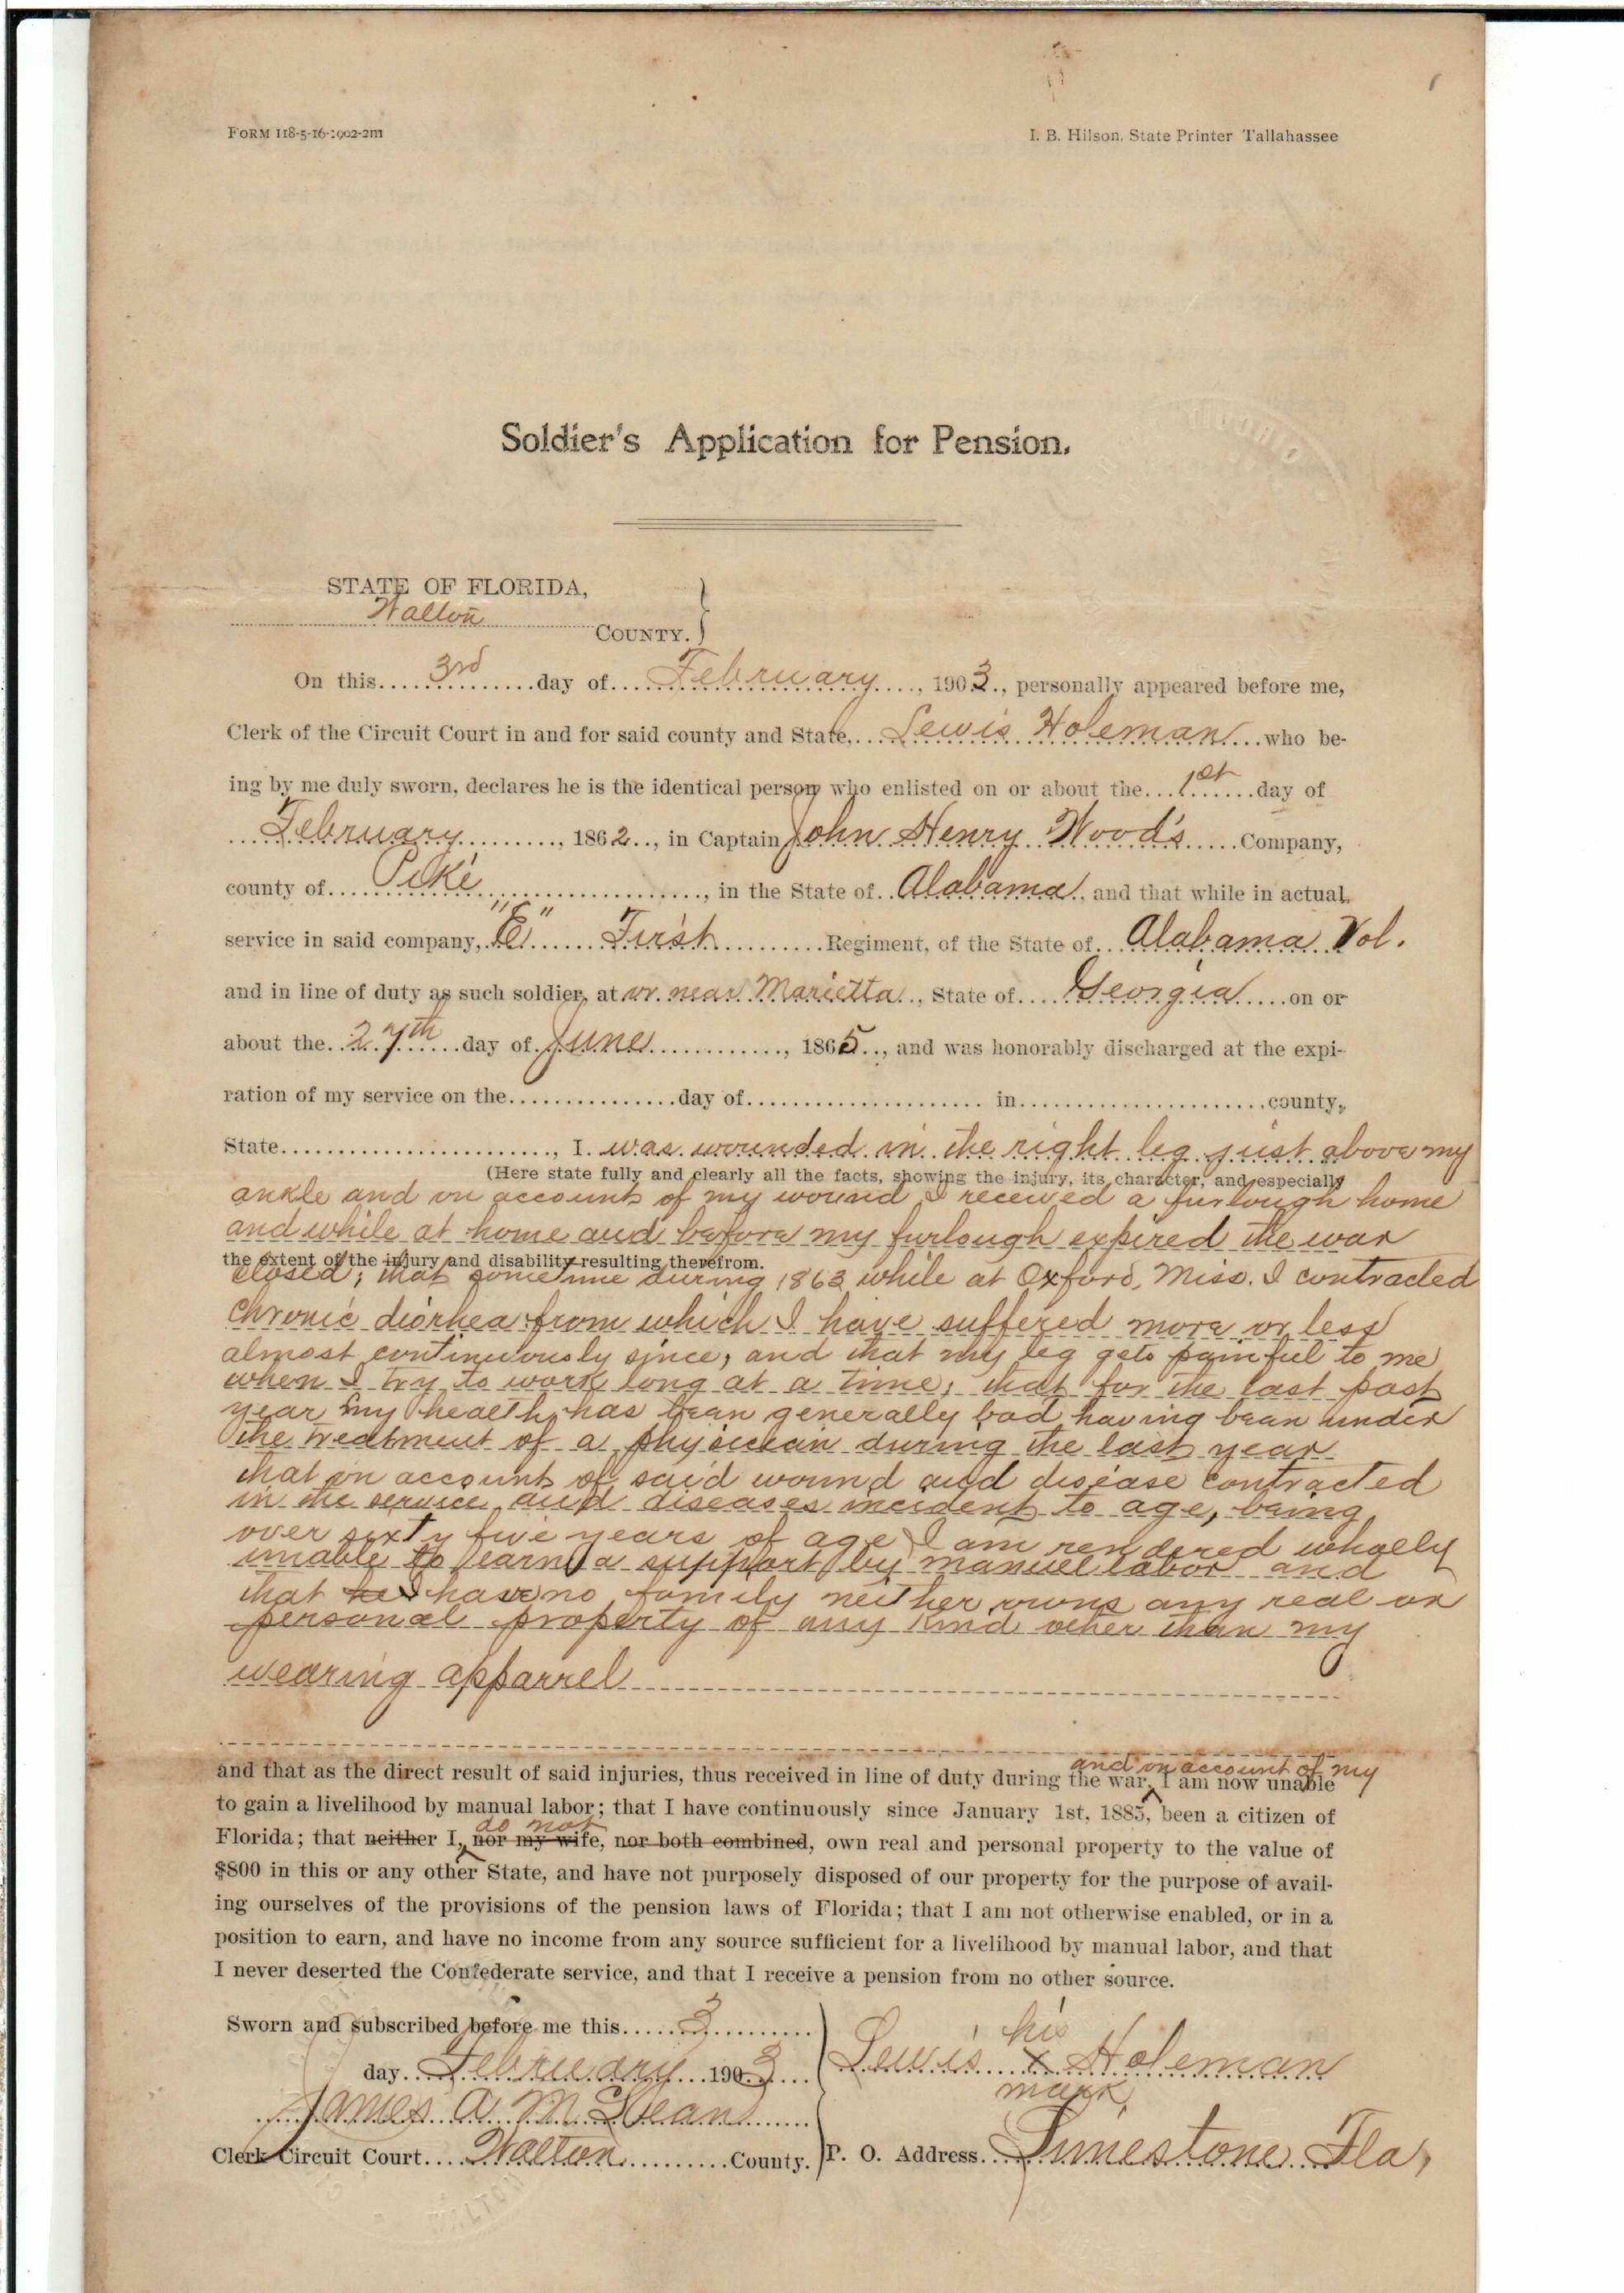 FORM 118-5-16-1902-2m
I. B. Hilson, State Printer Tallahassee
Soldier's Application for Pension.
STATE OF FLORIDA,
Walton COUNTY.
On this 3rd day of February, 1903, personally appeared before me,
Clerk of the Circuit Court in and for said county and State, Lewis Holeman who be-
ing by me duly sworn, declares he is the identical person who enlisted on or about the 1st day of
February, 1862, in Captain John Henry Wood's Company,
county of Pike, in the State of Alabama, and that while in actual
service in said company, "E" First Regiment, of the State of Alabama Vol.
and in line of duty as such soldier, at or near Marietta, State of Georgia on or
about the 27th day of June, 1865, and was honorably discharged at the expi-
ration of my service on the day of in county,
State, I was wounded in the right leg just above my
(Here state fully and clearly all the facts, showing the injury, its character, and especially
ankle and on account of my wound I received a furlough home
and while at home and before my furlough expired the war
the extent of the injury and disability resulting therefrom.
closed; that sometime during 1863 while at Oxford, Miss. I contracted
chronic diorhea from which I have suffered more or less
almost continuously since, and that my leg gets painful to me
when I try to work long at a time; that for the last past
year my health has bean generally bad having bean under
the treatment of a physician during the last year
that on account of said wound and disease contracted
in the service and diseases incident to age, being
over sixty five years of age I am rendered wholly
unable to earn a support by manuel labor and
that he I have no family neither owns any real or
personal property of any kind other than my
wearing apparrel
and on account of my
and that as the direct result of said injuries, thus received in line of duty during the war, I am now unable
to gain a livelihood by manual labor; that I have continuously since January 1st, 1885, been a citizen of
do not
Florida; that neither I, nor my wife, nor both combined, own real and personal property to the value of
$800 in this or any other State, and have not purposely disposed of our property for the purpose of avail-
ing ourselves of the provisions of the pension laws of Florida; that I am not otherwise enabled, or in a
position to earn, and have no income from any source sufficient for a livelihood by manual labor, and that
I never deserted the Confederate service, and that I receive a pension from no other source.
Sworn and subscribed before me this 3
day February 1903
James A. McLean
Clerk Circuit Court Walton County.
his
Lewis x Holeman
mark
P. O. Address Limestone Fla,